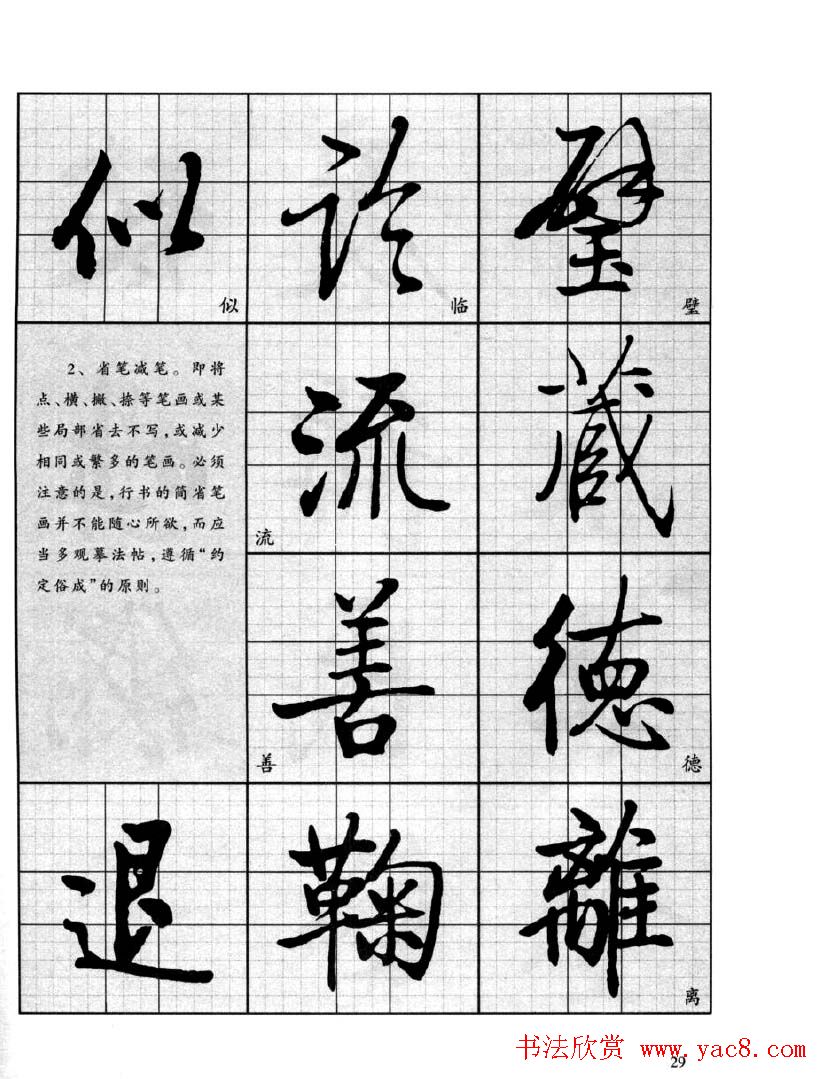 似 臨 璧
似 临 璧
2、省笔减笔。即将
点、横、撇、捺等笔画或某
些局部省去不写,或减少
相同或繁多的笔画。必须
注意的是,行书的简省笔
画并不能随心所欲,而应
当多观摹法帖,遵循“约
定俗成”的原则。
流 藏
流
善 德
善 德
退 鞠 離
离
29
书法欣赏 www.yac8.com